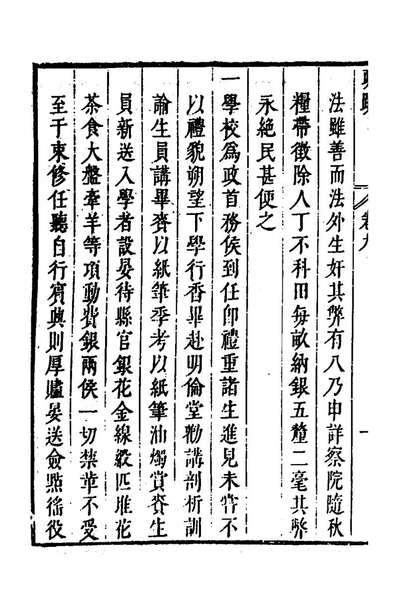 法雖善而法外生奸其弊有八乃申詳察院隨秋
糧帶徵除人丁不科田每畝納銀五釐二毫其弊
永絕民甚便之
一學校爲政首務侯到任卽禮重諸生進見未嘗不
以禮貌朔望下學行香畢赴明倫堂勸講剖析訓
諭生員講畢賚以紙筆季考以紙筆油燭賞賚生
員新送入學者設宴待縣官銀花金線緞匹堆花
茶食大盤牽羊等項動費銀兩侯一切禁革不受
至于束修任聽自行賓興則厚贐宴送僉點徭役
卷九
一